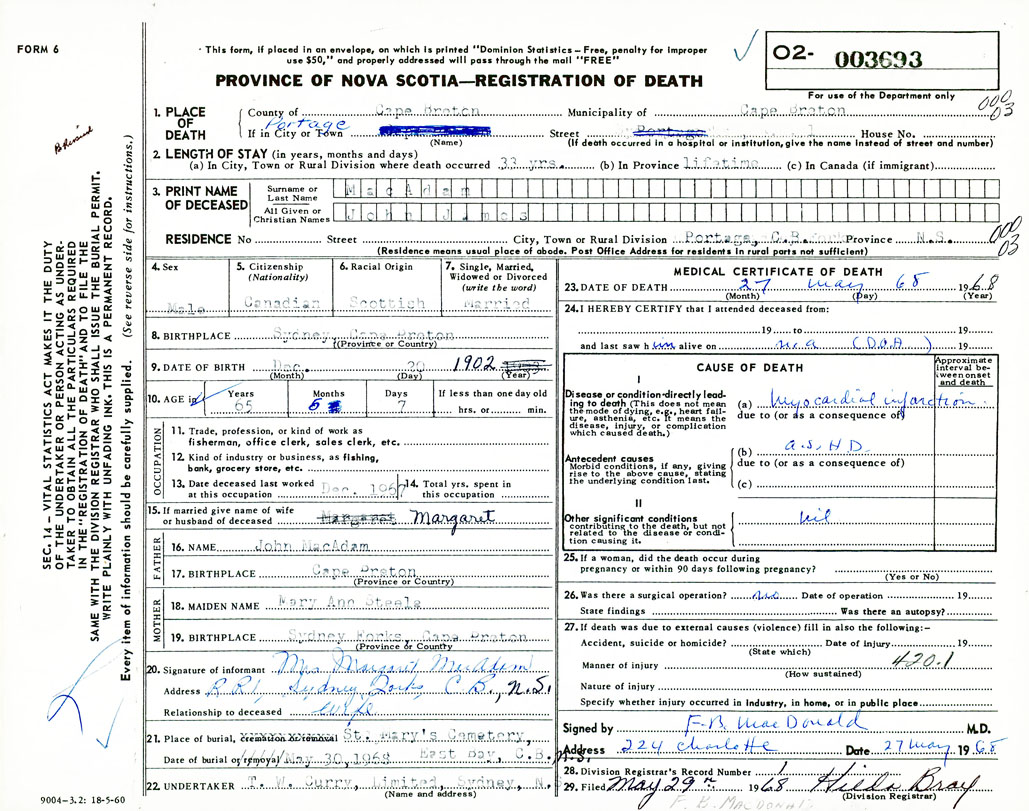 FORM 6
This form, if placed in an envelope, on which is printed "Dominion Statistics – Free, penalty for improper
use $50," and properly addressed will pass through the mail "FREE"
02- 003693
PROVINCE OF NOVA SCOTIA—REGISTRATION OF DEATH
For use of the Department only
000
03
1. PLACE OF DEATH
County of Cape Breton Municipality of Cape Breton
If in City or Town Portage Street House No.
(Name) (If death occurred in a hospital or institution, give the name instead of street and number)
2. LENGTH OF STAY (in years, months and days)
(a) In City, Town or Rural Division where death occurred 33 yrs. (b) In Province lifetime (c) In Canada (if immigrant)
3. PRINT NAME OF DECEASED
Surname or Last Name MacAdam
All Given or Christian Names John James
000
03
RESIDENCE No Street City, Town or Rural Division Portage, C.B. Province N.S.
(Residence means usual place of abode. Post Office Address for residents in rural parts not sufficient)
4. Sex
Male
5. Citizenship
(Nationality)
Canadian
6. Racial Origin
Scottish
7. Single, Married,
Widowed or Divorced
(write the word)
Married
8. BIRTHPLACE Sydney Cape Breton
(Province or Country)
9. DATE OF BIRTH Dec. 20 1902
(Month) (Day) (Year)
10. AGE in Years 65 Months 5 Days 7 If less than one day old
hrs. or min.
OCCUPATION
11. Trade, profession, or kind of work as
fisherman, office clerk, sales clerk, etc.
12. Kind of industry or business, as fishing,
bank, grocery store, etc.
13. Date deceased last worked
at this occupation Dec. 1967
14. Total yrs. spent in
this occupation
15. If married give name of wife
or husband of deceased Margaret Margaret
FATHER
16. NAME John MacAdam
17. BIRTHPLACE Cape Breton
(Province or Country)
MOTHER
18. MAIDEN NAME Mary Ann Steele
19. BIRTHPLACE Sydney Forks, Cape Breton
(Province or Country)
20. Signature of informant Mrs Margaret MacAdam
Address R R 1, Sydney Forks C B., N.S.
Relationship to deceased wife
21. Place of burial, cremation or removal St. Mary's Cemetery,
East Bay, C.B. N.S.
Date of burial or removal May 30, 1968
22. UNDERTAKER T. W. Curry, Limited, Sydney, N.S.
(Name and address)
9004-3.2: 18-5-60
MEDICAL CERTIFICATE OF DEATH
23. DATE OF DEATH 27 May 68 1968
(Month) (Day) (Year)
24. I HEREBY CERTIFY that I attended deceased from:
19 to 19
and last saw him alive on n.a (D.O.A) 19
CAUSE OF DEATH
Approximate interval between onset and death
I
Disease or condition directly leading to death (This does not mean
the mode of dying, e.g., heart failure, asthenia, etc. It means the
disease, injury, or complication
which caused death.)
(a) Myocardial infarction
due to (or as a consequence of)
Antecedent causes
Morbid conditions, if any, giving
rise to the above cause, stating
the underlying condition last.
(b) a.s.H D.
due to (or as a consequence of)
(c)
II
Other significant conditions
contributing to the death, but not
related to the disease or condition causing it.
nil
25. If a woman, did the death occur during
pregnancy or within 90 days following pregnancy?
(Yes or No)
26. Was there a surgical operation? no Date of operation 19
State findings Was there an autopsy?
27. If death was due to external causes (violence) fill in also the following:–
Accident, suicide or homicide? Date of injury 19
(State which)
420.1
Manner of injury
(How sustained)
Nature of injury
Specify whether injury occurred in industry, in home, or in public place
Signed by F.B. MacDonald M.D.
Address 224 Charlotte Date 27 May 1968
28. Division Registrar's Record Number 1
29. Filed May 29th 1968 Hilda Bray
(Division Registrar)
F. B. MACDONALD
SEC. 14 – VITAL STATISTICS ACT MAKES IT THE DUTY
OF THE UNDERTAKER OR PERSON ACTING AS UNDERTAKER TO OBTAIN ALL THE PARTICULARS REQUIRED
IN THE "REGISTRATION OF DEATH" AND TO FILE THE
SAME WITH THE DIVISION REGISTRAR WHO SHALL ISSUE THE BURIAL PERMIT.
WRITE PLAINLY WITH UNFADING INK. THIS IS A PERMANENT RECORD.
Every item of information should be carefully supplied. (See reverse side for instructions.)